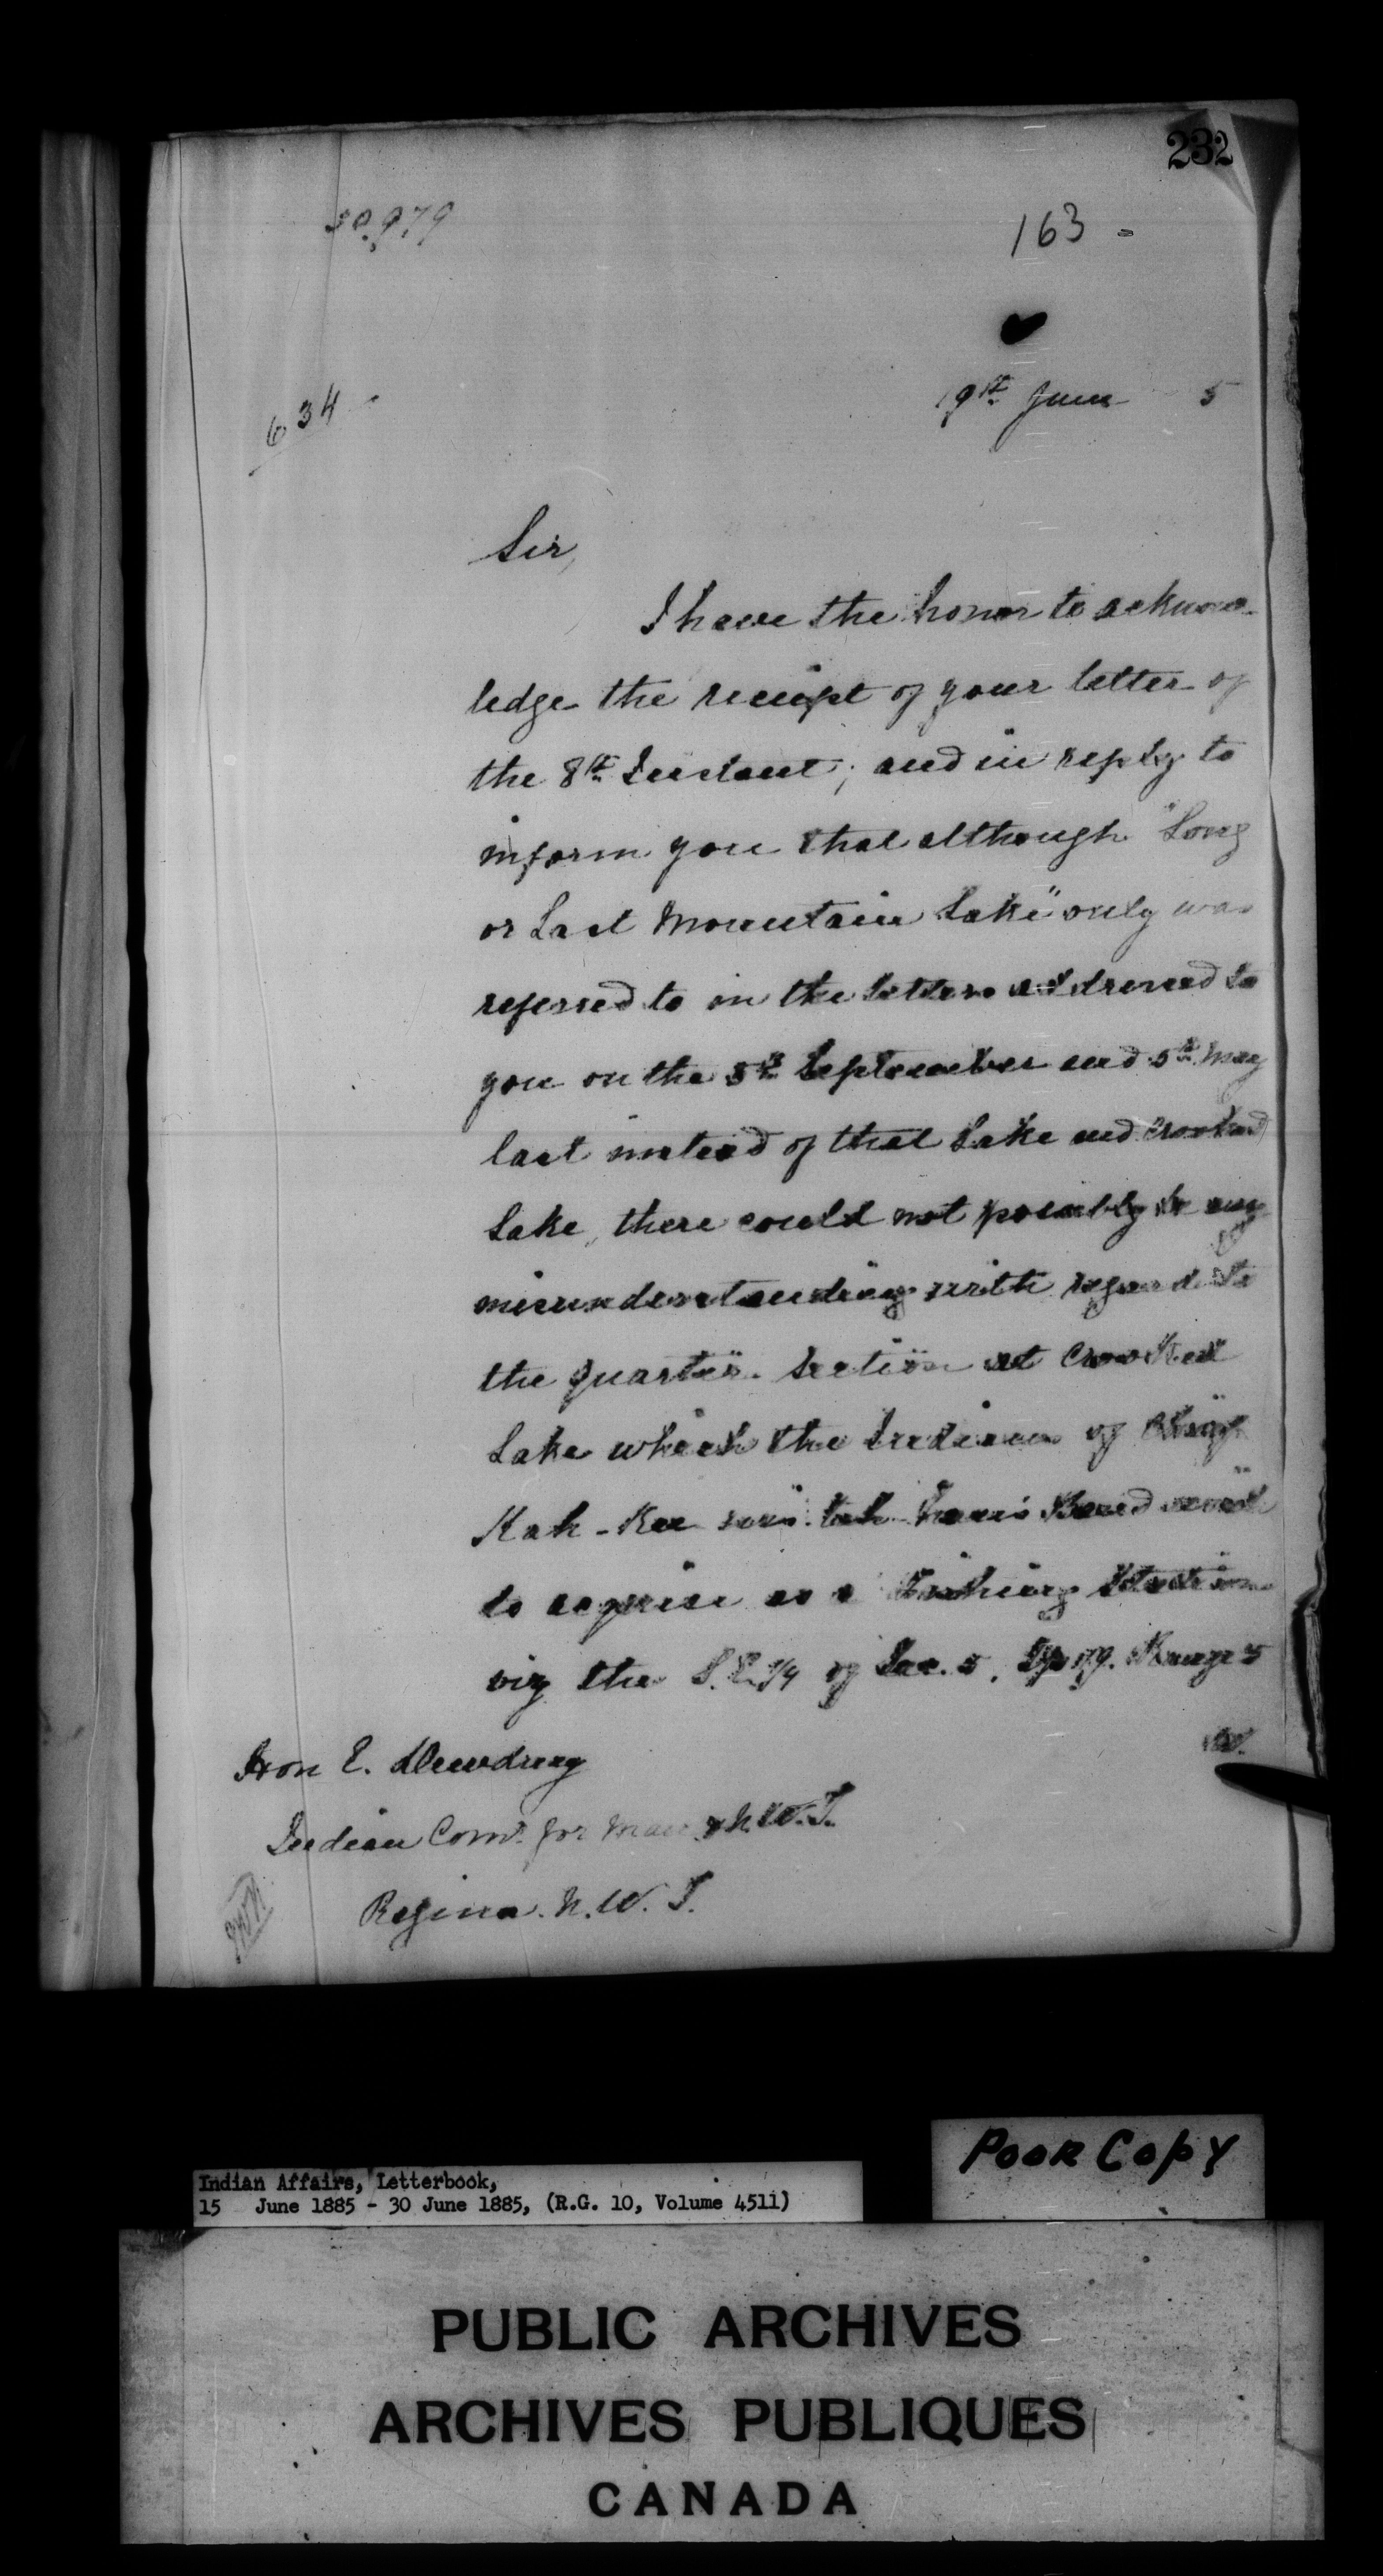 232
163 -
634 -
19th June 5
Sir,
I have the honor to acknow-
ledge the receipt of your letter of
the 8th Instant; and in reply to
inform you that although "Long
or Last Mountain Lake" only was
referred to in the letters addressed to
you on the 5th September and 5th May
last instead of that Lake and Crooked
Lake, there could not possibly be any
misunderstanding with regard to
the quarter Section at Crooked
Lake which the Indians of
Kah-Kee Band
to acquire as a Fishing Station
viz the S.E. 1/4 of Sec. 5, Tp 19. Range 5
W.
Hon E. Dewdney
Indian Comr. for Man. & N.W.T.
Regina. N.W.T.
Poor Copy
Indian Affairs, Letterbook,
15 June 1885 - 30 June 1885, (R.G. 10, Volume 4511)
PUBLIC ARCHIVES
ARCHIVES PUBLIQUES
CANADA